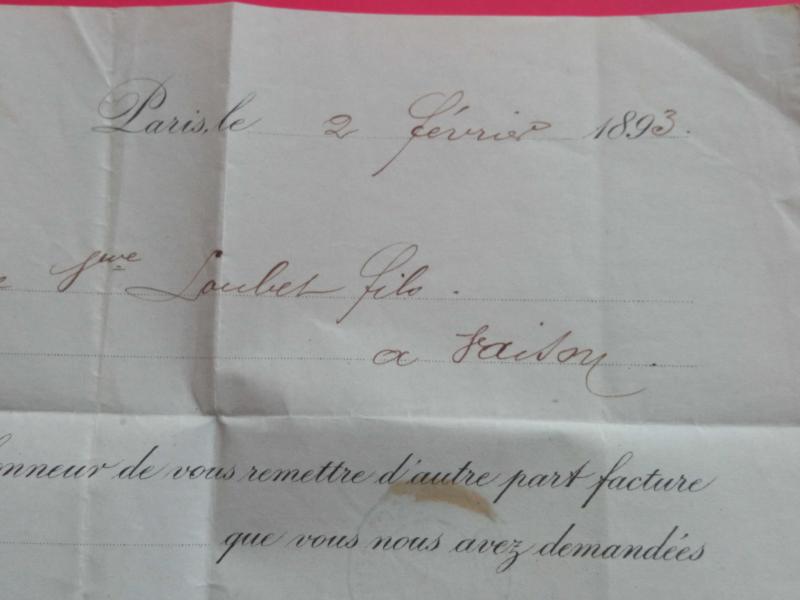 Paris, le 2 février 1893.
Loubet fils.
a Vaison.
onneur de vous remettre d'autre part facture
que vous nous avez demandées